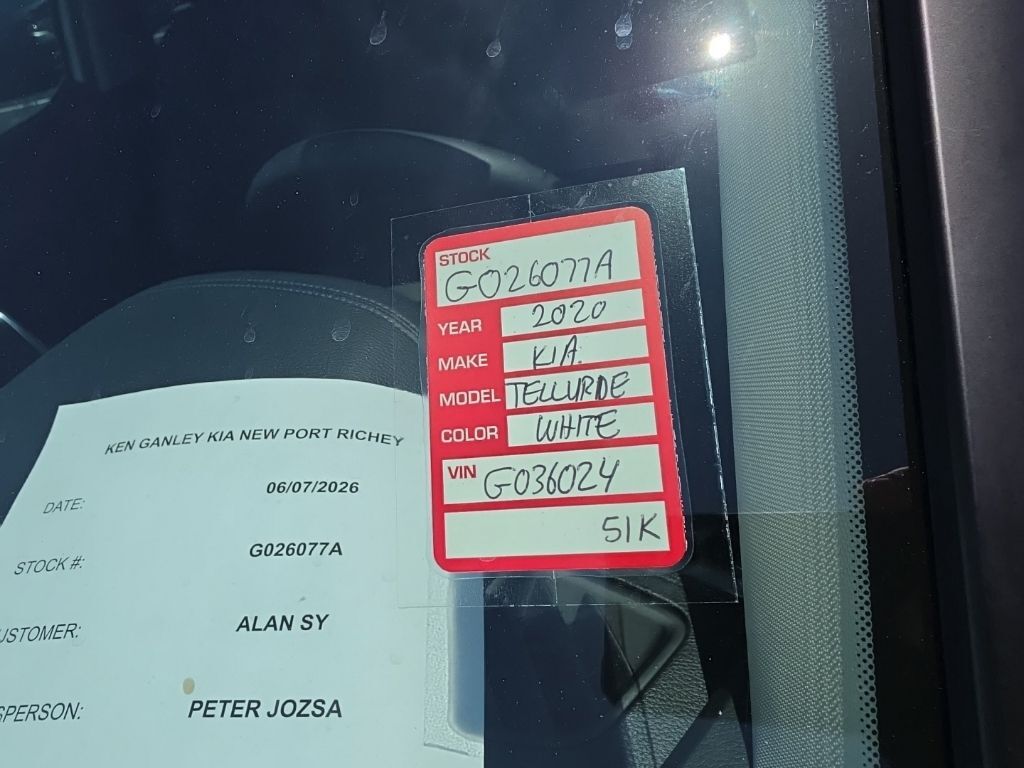 STOCK
G026077A
YEAR 2020
MAKE KIA.
MODEL TELLURDE
COLOR WHITE
VIN G036024
51K
KEN GANLEY KIA NEW PORT RICHEY
DATE: 06/07/2026
STOCK #: G026077A
USTOMER: ALAN SY
SPERSON: PETER JOZSA